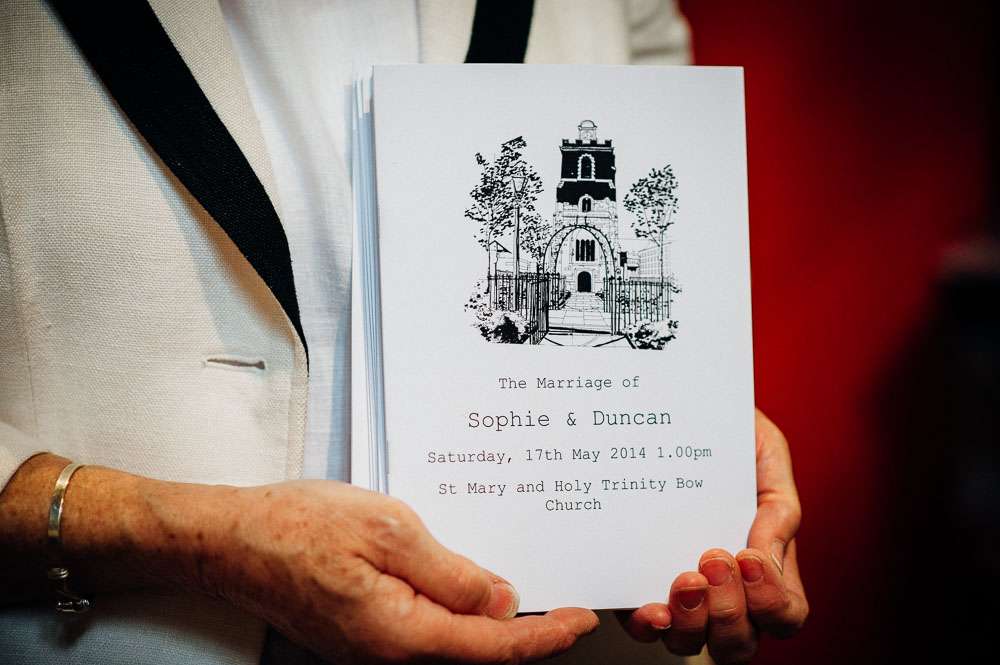 The Marriage of
Sophie & Duncan
Saturday, 17th May 2014 1.00pm
St Mary and Holy Trinity Bow
Church